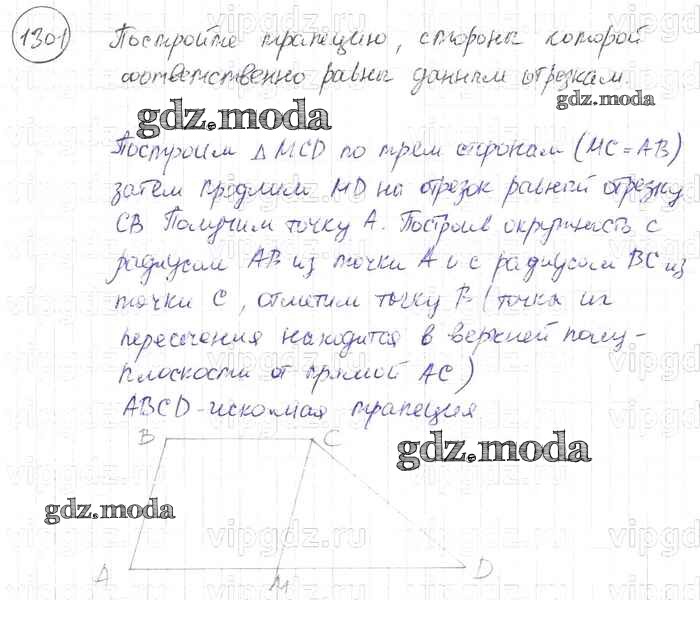 1301
Постройте трапецию, стороны которой
соответственно равны данным отрезкам.
gdz.moda
gdz.moda
Построим △ MCD по трем сторонам (MC = AB)
затем продлим MD на отрезок равный отрезку
CB Получим точку A. Построив окружность с
радиусом AB из точки A и с радиусом BC из
точки C, отметим точку B (точка их
пересечения находится в верхней полу-
плоскости от прямой AC)
ABCD - искомая трапеция
B C
gdz.moda
gdz.moda
A M D
vipgdz.ru